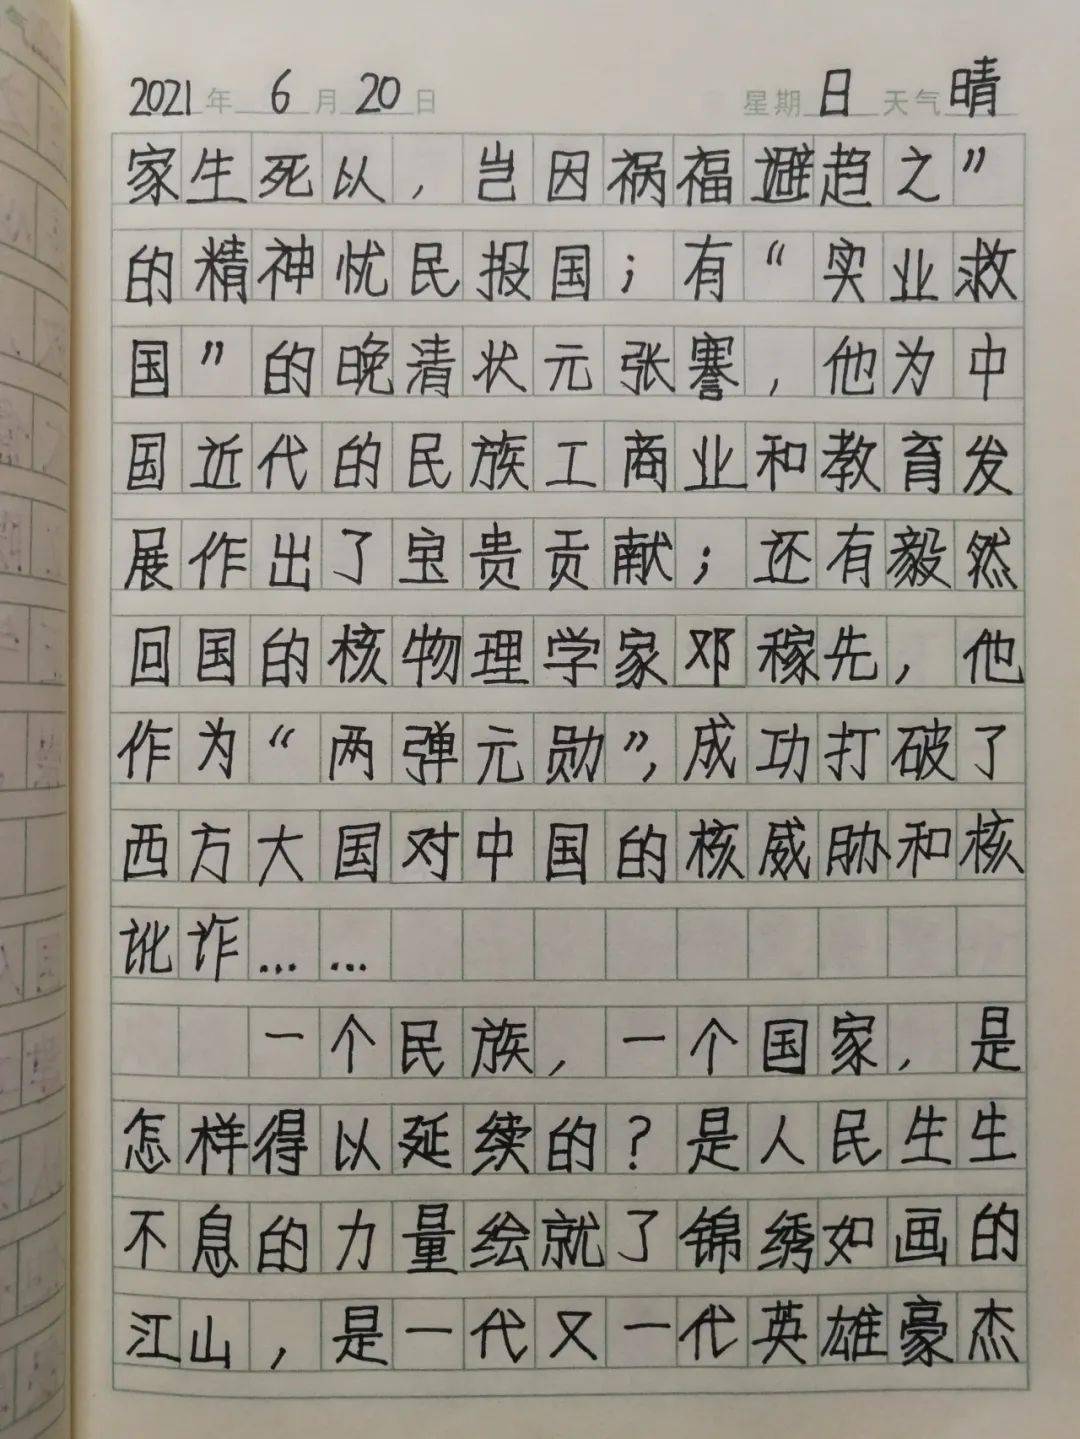 2021年 6月 20日 星期 日 天气 晴
家生死以，岂因祸福避趋之”
的精神忧民报国；有“实业救
国”的晚清状元张謇，他为中
国近代的民族工商业和教育发
展作出了宝贵贡献；还有毅然
回国的核物理学家邓稼先，他
作为“两弹元勋”，成功打破了
西方大国对中国的核威胁和核
讹诈……
一个民族，一个国家，是
怎样得以延续的？是人民生生
不息的力量绘就了锦绣如画的
江山，是一代又一代英雄豪杰